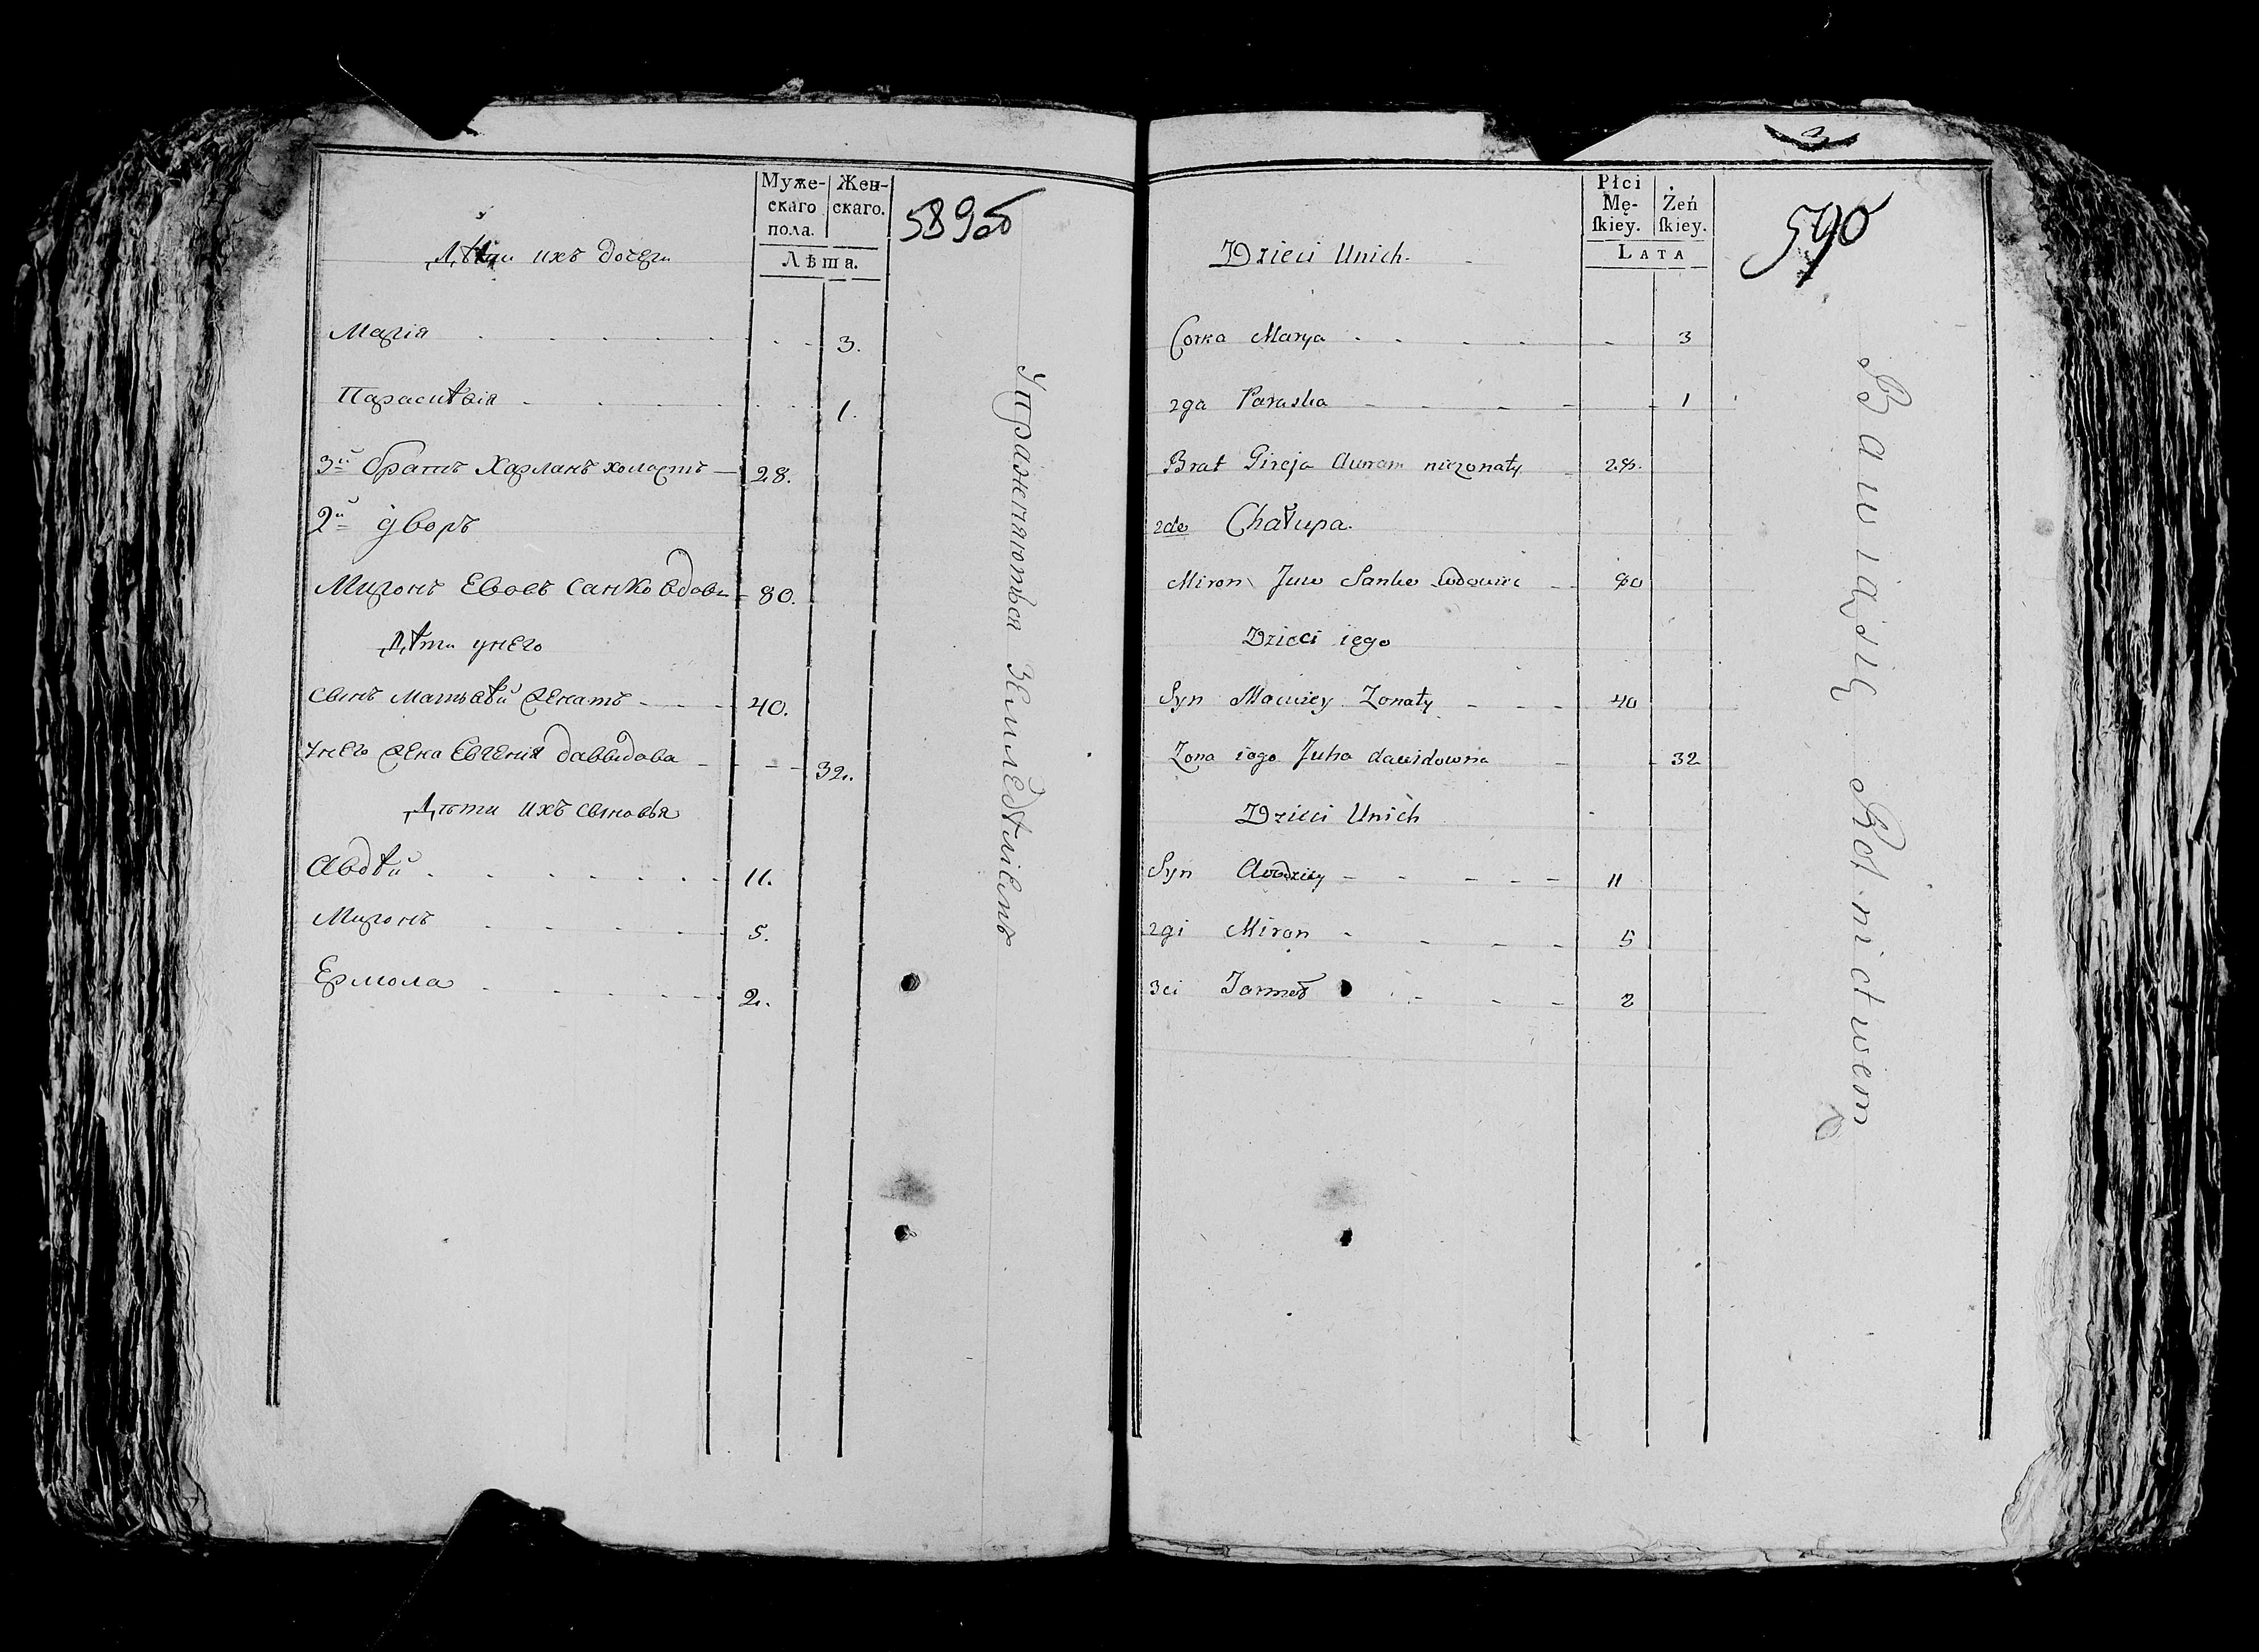 Муже-
скаго
пола.
Жен-
скаго.
Лѣта.
589об
Дѣти ихъ дочери
Марія 3.
Параскѣвія 1.
3й братъ Харланъ холостъ 28.
2й дворъ
Миронъ Евовъ Санко вдовъ 80.
Дѣти унего
сынъ Матьвѣй женатъ 40.
унего жена Евгенія Давыдова 32.
Дѣти ихъ сыновья
Авдѣй 11.
Миронъ 5.
Ермола 2.
Упражняються Земледѣліемъ
3
Płci
Mę-
ſkiey.
Żeń
ſkiey.
LATA
590
Dzieci Unich.
Corka Marya 3
2ga Paraska 1
Brat niezonaty 28.
2da Chałupa.
Miron Juw Sanko wdowiec 80
Dzieci iego
Syn Maciwiey Zonaty 40
Zona iego Juha dawidowna 32
Dzieci Unich
Syn Awdziey 11
2gi Miron 5
3ci 2
Bawią się Rolnictwem